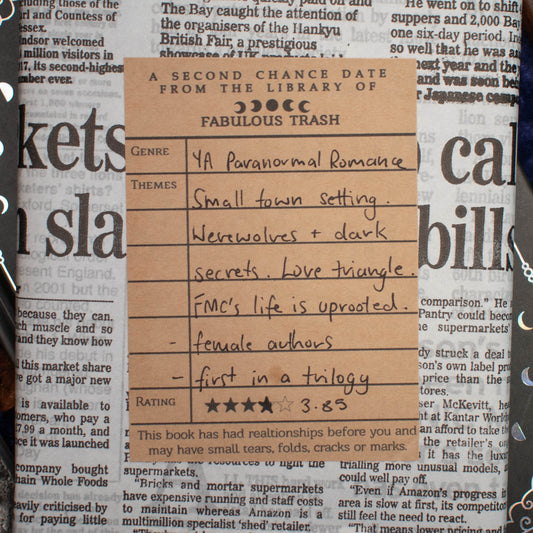 uding those of the
rl and Countess of
essex.
indsor welcomed
million visitors in
17, its second-highest
mber ever.
The Bay caught the attention of
the organisers of the Hankyu
British Fair, a prestigious
He went on to shift
suppers and 2,000 Bay
one six-day period. In
so well that he was
next year and the
and was soon
r Japanese
kets
n sla
cal
bills
A SECOND CHANCE DATE
FROM THE LIBRARY OF
FABULOUS TRASH
GENRE YA Paranormal Romance
THEMES Small town setting.
Werewolves + dark
secrets. Love triangle.
FMC's life is uprooted.
- female authors
- first in a trilogy
RATING ★★★★☆ 3.85
This book has had realtionships before you and
may have small tears, folds, cracks or marks.
because they can,
ch muscle and so
and they know how
d this market share
ve got a major new
is available to
omers, who pay a
7.99 a month, and
ce it was launched
company bought
hain Whole Foods
eavily criticised by
for paying little
comparison." He
Pantry could
the supermarkets'
dy struck a deal
son's own label
price than the
stores.
ser McKevitt,
nt at Kantar World
an afford to take
the retailer's
it has the
trialling more unusual models,
could well pay off.
"Even if Amazon's progress
area is slow at first, its competitor
still feel the need to react.
"That means lower pricing and
resources to fight the
supermarkets.
"Bricks and mortar supermarkets
have expensive running and staff costs
to maintain whereas Amazon is a
multimillion specialist 'shed' retailer.